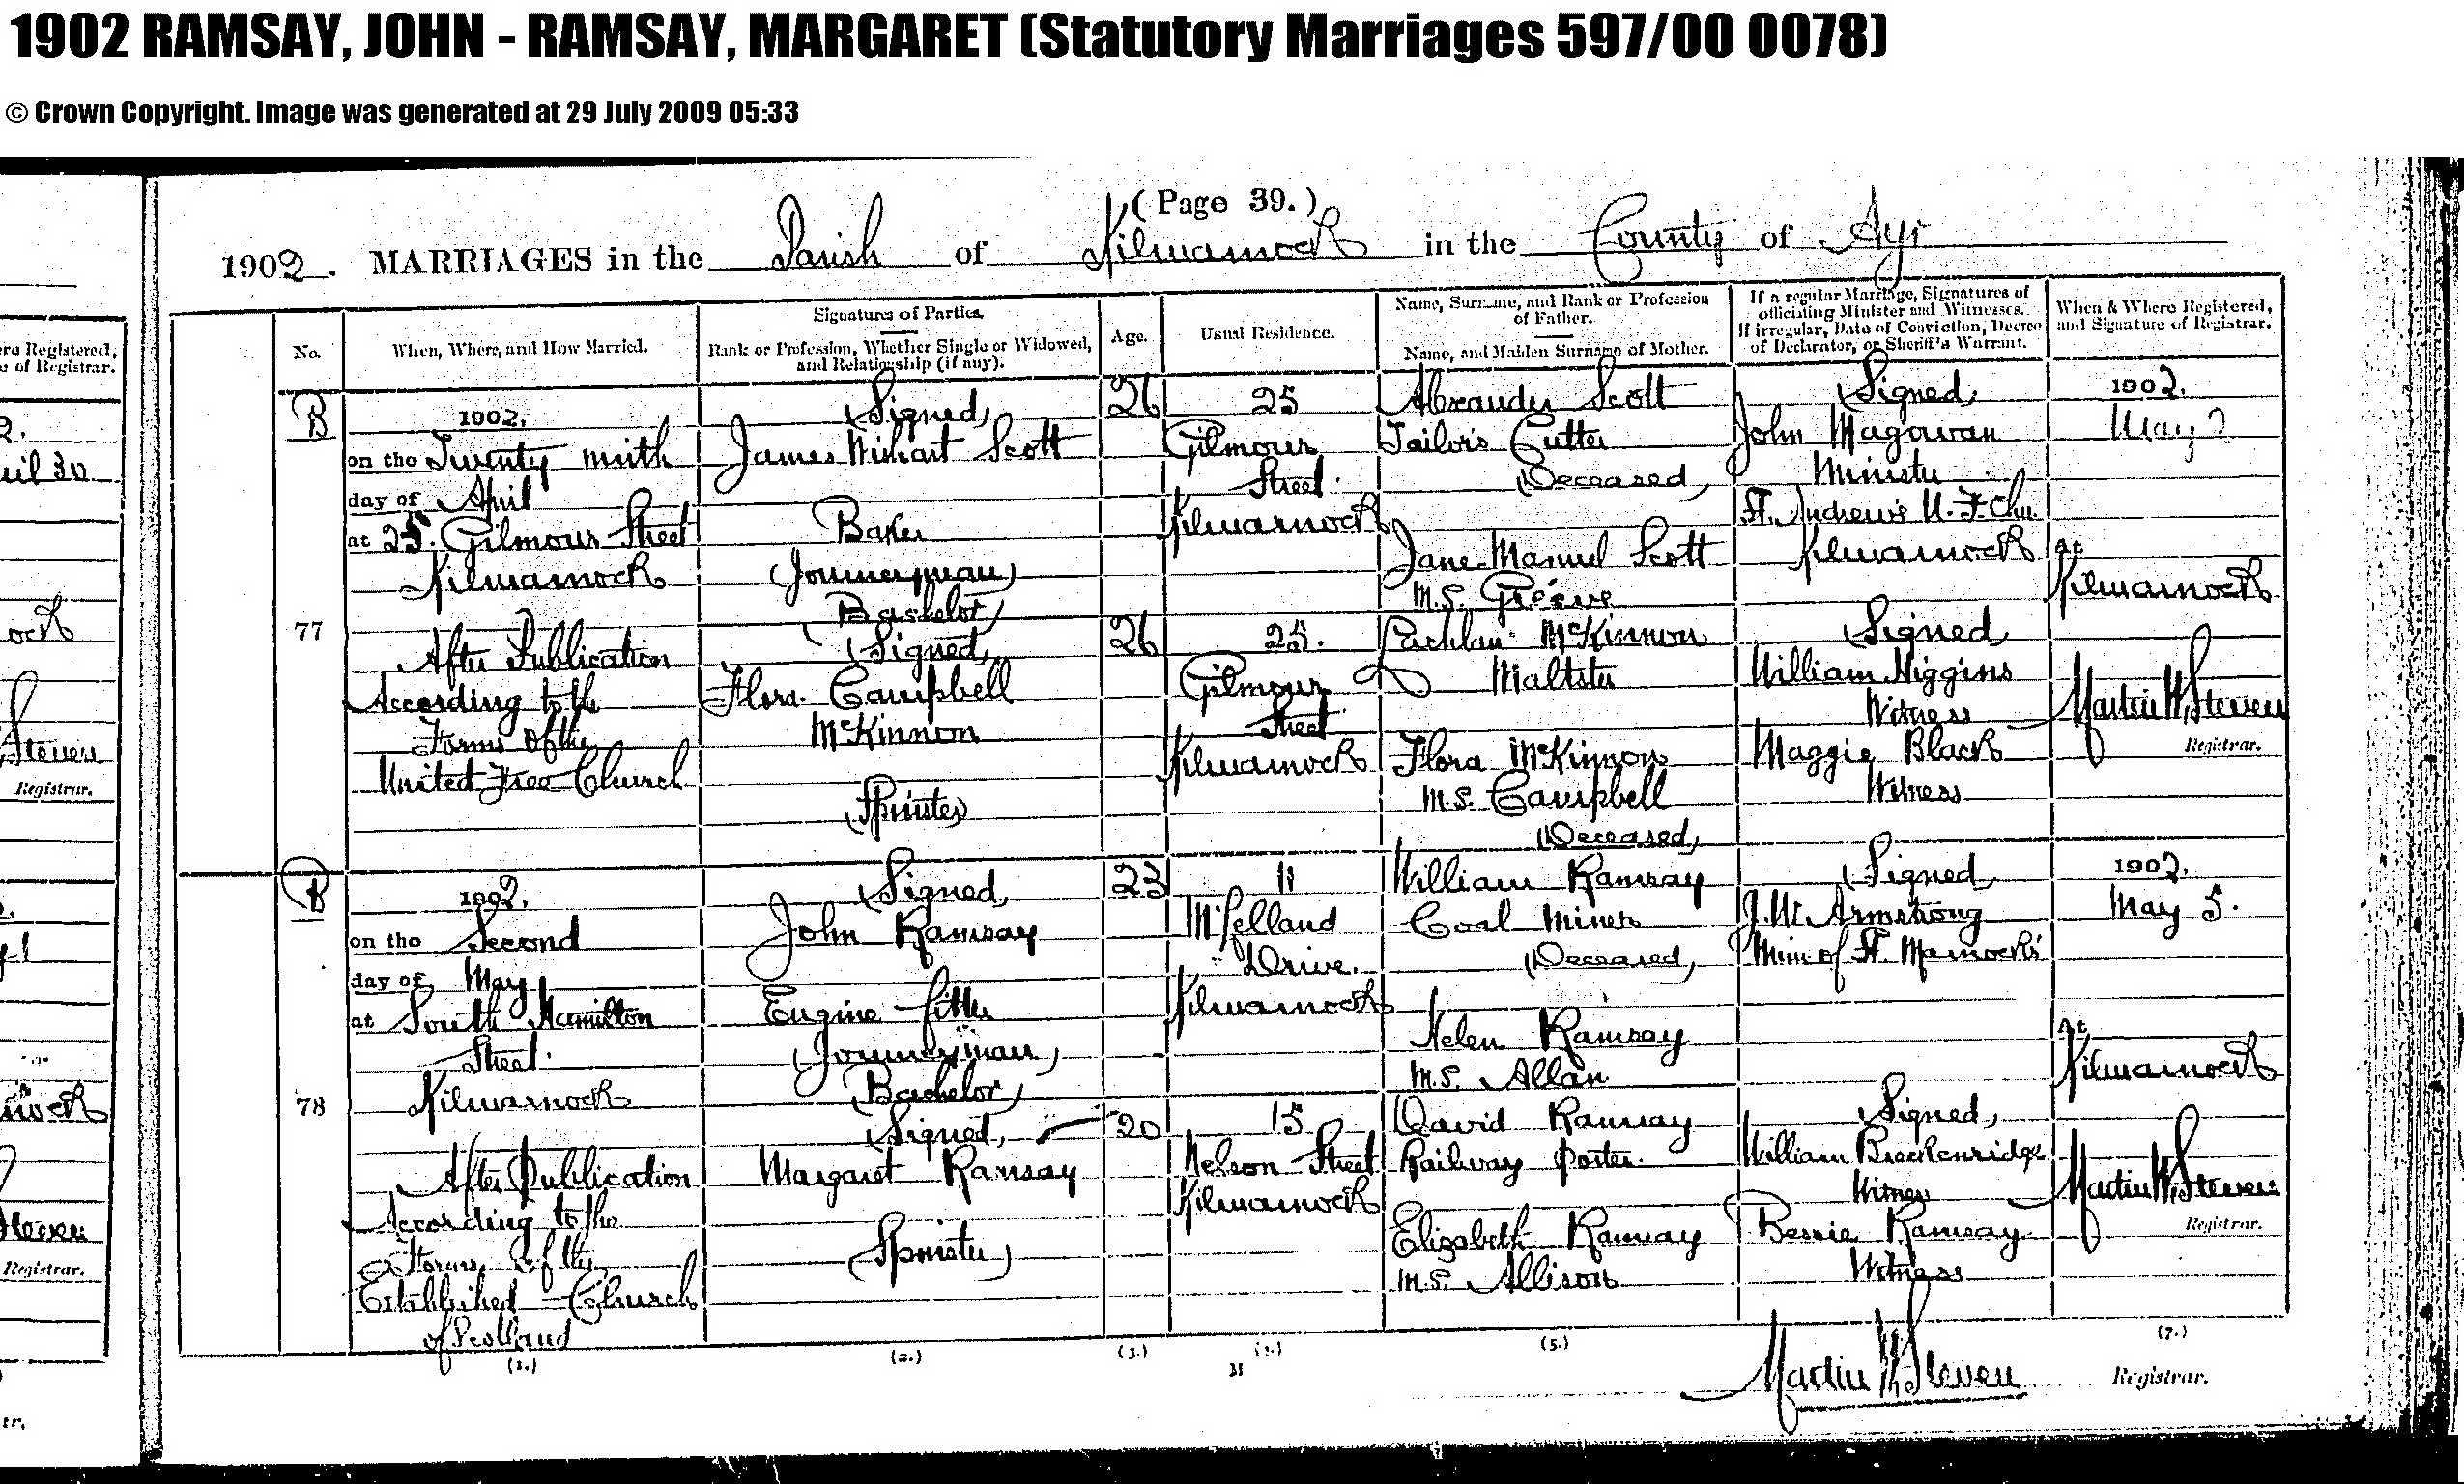 1902 RAMSAY, JOHN - RAMSAY, MARGARET (Statutory Marriages 597/00 0078)
© Crown Copyright. Image was generated at 29 July 2009 05:33
(Page 39.)
1902. MARRIAGES in the Parish of Kilmarnock in the County of Ayr
No.
When, Where, and How Married.
Signatures of Parties.
Rank or Profession, Whether Single or Widowed,
and Relationship (if any).
Age.
Usual Residence.
Name, Surname, and Rank or Profession
of Father.
Name, and Maiden Surname of Mother.
If a regular Marriage, Signatures of
officiating Minister and Witnesses.
If irregular, Date of Conviction, Decree
of Declarator, or Sheriff's Warrant.
When & Where Registered,
and Signature of Registrar.
B
77
1902.
on the Twenty ninth
day of April
at 25 Gilmour Street
Kilmarnock
After Publication
According to the
Forms of the
United Free Church
(Signed)
James Wishart Scott
Baker
(Journeyman)
(Bachelor)
(Signed)
Flora Campbell
McKinnon
(Spinster)
26
26
25
Gilmour
Street
Kilmarnock
25.
Gilmour
Street
Kilmarnock
Alexander Scott
Tailor's Cutter
(Deceased)
Jane Manuel Scott
M.S. Grieve
Lachlan McKinnon
Maltster
Flora McKinnon
M.S. Campbell
(Deceased)
(Signed)
John Magowan
Minister
St. Andrew's U. F. Chu.
Kilmarnock
(Signed)
William Higgins
Witness
Maggie Black
Witness
1902.
May
at
Kilmarnock
Martin W. Steven
Registrar.
B
78
1902.
on the Second
day of May
at South Hamilton
Street
Kilmarnock
After Publication
According to the
Forms of the
Established Church
of Scotland
(Signed)
John Ramsay
Engine fitter
(Journeyman)
(Bachelor)
(Signed)
Margaret Ramsay
(Spinster)
23
20
11
McLelland
Drive.
Kilmarnock
15
Nelson Street
Kilmarnock
William Ramsay
Coal Miner
(Deceased)
Helen Ramsay
M.S. Allan
David Ramsay
Railway Porter
Elizabeth Ramsay
M.S. Allison
(Signed)
J. W. Armstrong
Min of St. Marnock's
(Signed)
William Breckenridge
Witness
Bessie Ramsay
Witness
1902.
May 5.
at
Kilmarnock
Martin W. Steven
Registrar.
(1.) (2.) (3.) (4.) (5.) (7.)
Martin W Steven
Registrar.
ere Registered,
e of Registrar.
ril 30
ock
Steven
Registrar.
nock
Steven
Registrar.